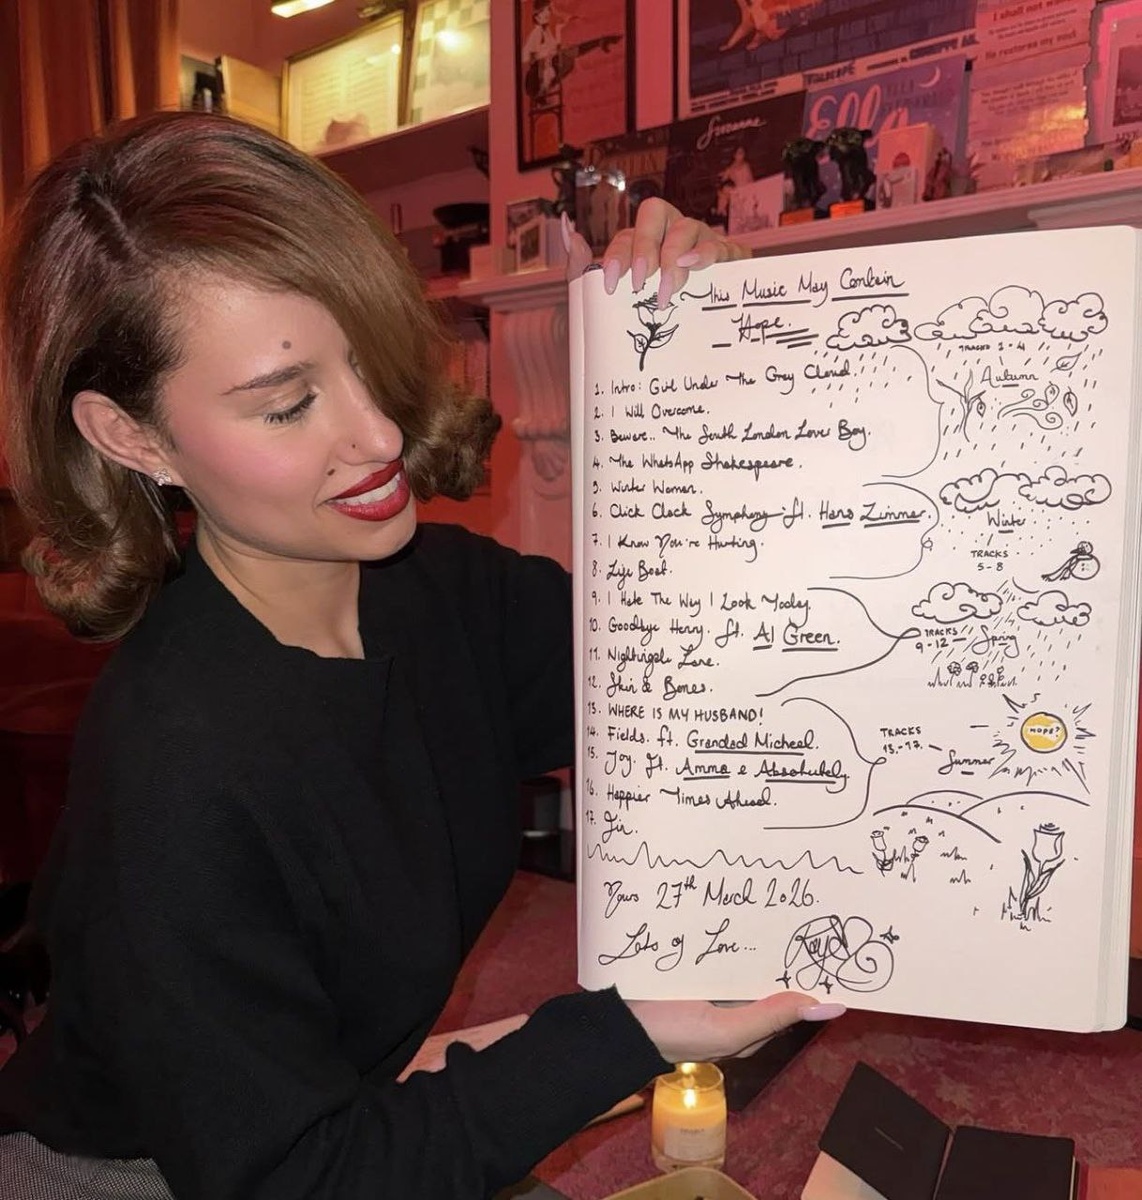 Ella
Suzanne
I shall not want
He restores my soul
This Music May Contain
Hope.
1. Intro: Girl Under The Grey Cloud.
2. I Will Overcome.
3. Beware.. The South London Lover Boy.
4. The WhatsApp Shakespeare.
5. Winter Woman.
6. Click Clack Symphony ft. Hans Zimmer.
7. I Know You're Hurting.
8. Life Boat.
9. I Hate The Way I Look Today.
10. Goodbye Henry. ft. Al Green.
11. Nightingale Lane.
12. Skin & Bones.
13. WHERE IS MY HUSBAND!
14. Fields. ft. Grandad Micheal.
15. Joy. ft. Amma e Absolutely.
16. Happier Times Ahead.
17. Fin.
TRACKS 1-4
Autumn
Winter
TRACKS
5-8
TRACKS
9-12 — Spring
TRACKS
13.-17. — Summer
HOPE?
Yours 27th March 2026.
Lots of Love...